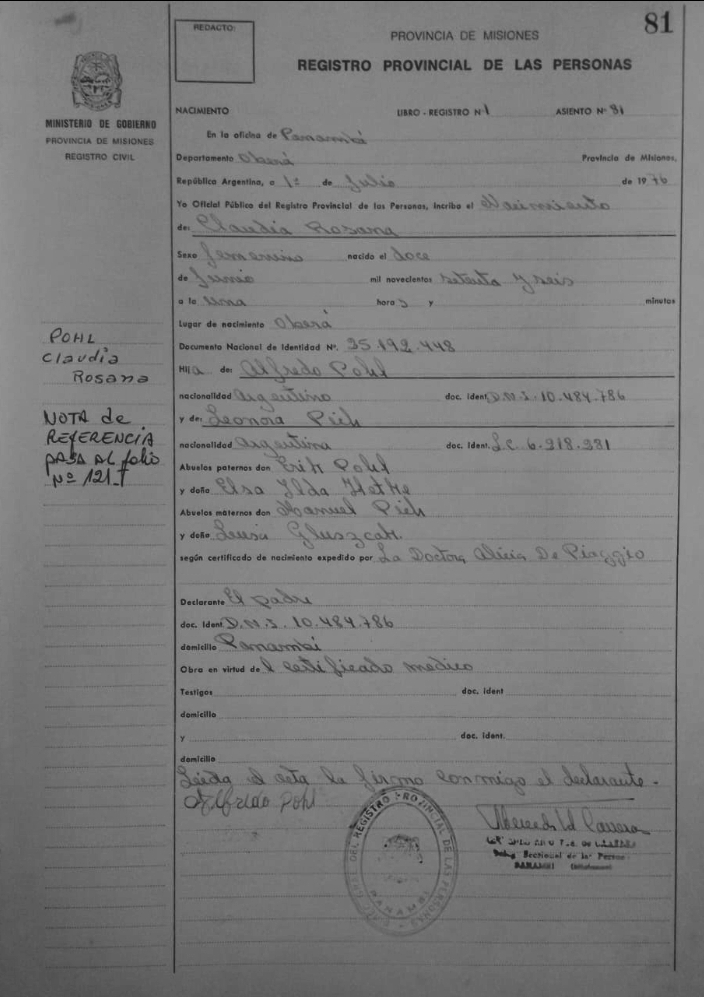 81
REDACTO:
PROVINCIA DE MISIONES
REGISTRO PROVINCIAL DE LAS PERSONAS
MINISTERIO DE GOBIERNO
PROVINCIA DE MISIONES
REGISTRO CIVIL
NACIMIENTO LIBRO - REGISTRO Nº 1 ASIENTO Nº 81
En la oficina de Panambí
Departamento Oberá Provincia de Misiones,
República Argentina, a 1º de Julio de 1976
Yo Oficial Público del Registro Provincial de las Personas, inscribo el Nacimiento
de: Claudia Rosana
Sexo femenino nacido el doce
de Junio mil novecientos setenta y seis
a la una hora s y minutos
Lugar de nacimiento Oberá
Documento Nacional de Identidad Nº. 25.192.448
Hija de: Alfredo Pohl
nacionalidad Argentino doc. ident. D.N.I. 10.484.786
y de: Leonora Pich
nacionalidad Argentina doc. ident. L.C. 6.218.931
Abuelos paternos don Erich Pohl
y doña Elsa Ilda
Abuelos maternos don Manuel Pich
y doña Luisa
según certificado de nacimiento expedido por La Doctora Alicia De Piaggio
Declarante El padre
doc. ident. D.N.I. 10.484.786
domicilio Panambí
Obra en virtud del certificado medico
Testigos doc. ident
domicilio
y doc. ident.
domicilio
Leida el acta la firma conmigo el declarante.-
Alfredo Pohl
POHL
Claudia
Rosana
NOTA de
REFERENCIA
PASA AL folio
Nº 121
REGISTRO PROVINCIAL DE LAS PERSONAS
PANAMBI
Seccional de las Person
PANAMBI